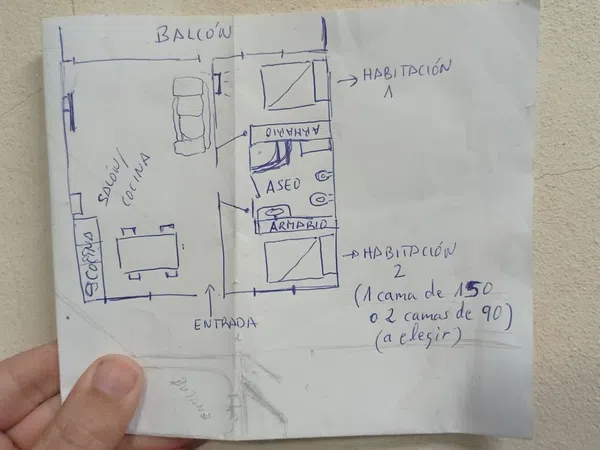 BALCÓN
HABITACIÓN
1
ARMARIO
SALÓN/
COCINA
ASEO
ARMARIO
COCINA
HABITACIÓN
2
(1 cama de 150
o 2 camas de 90)
(a elegir)
ENTRADA